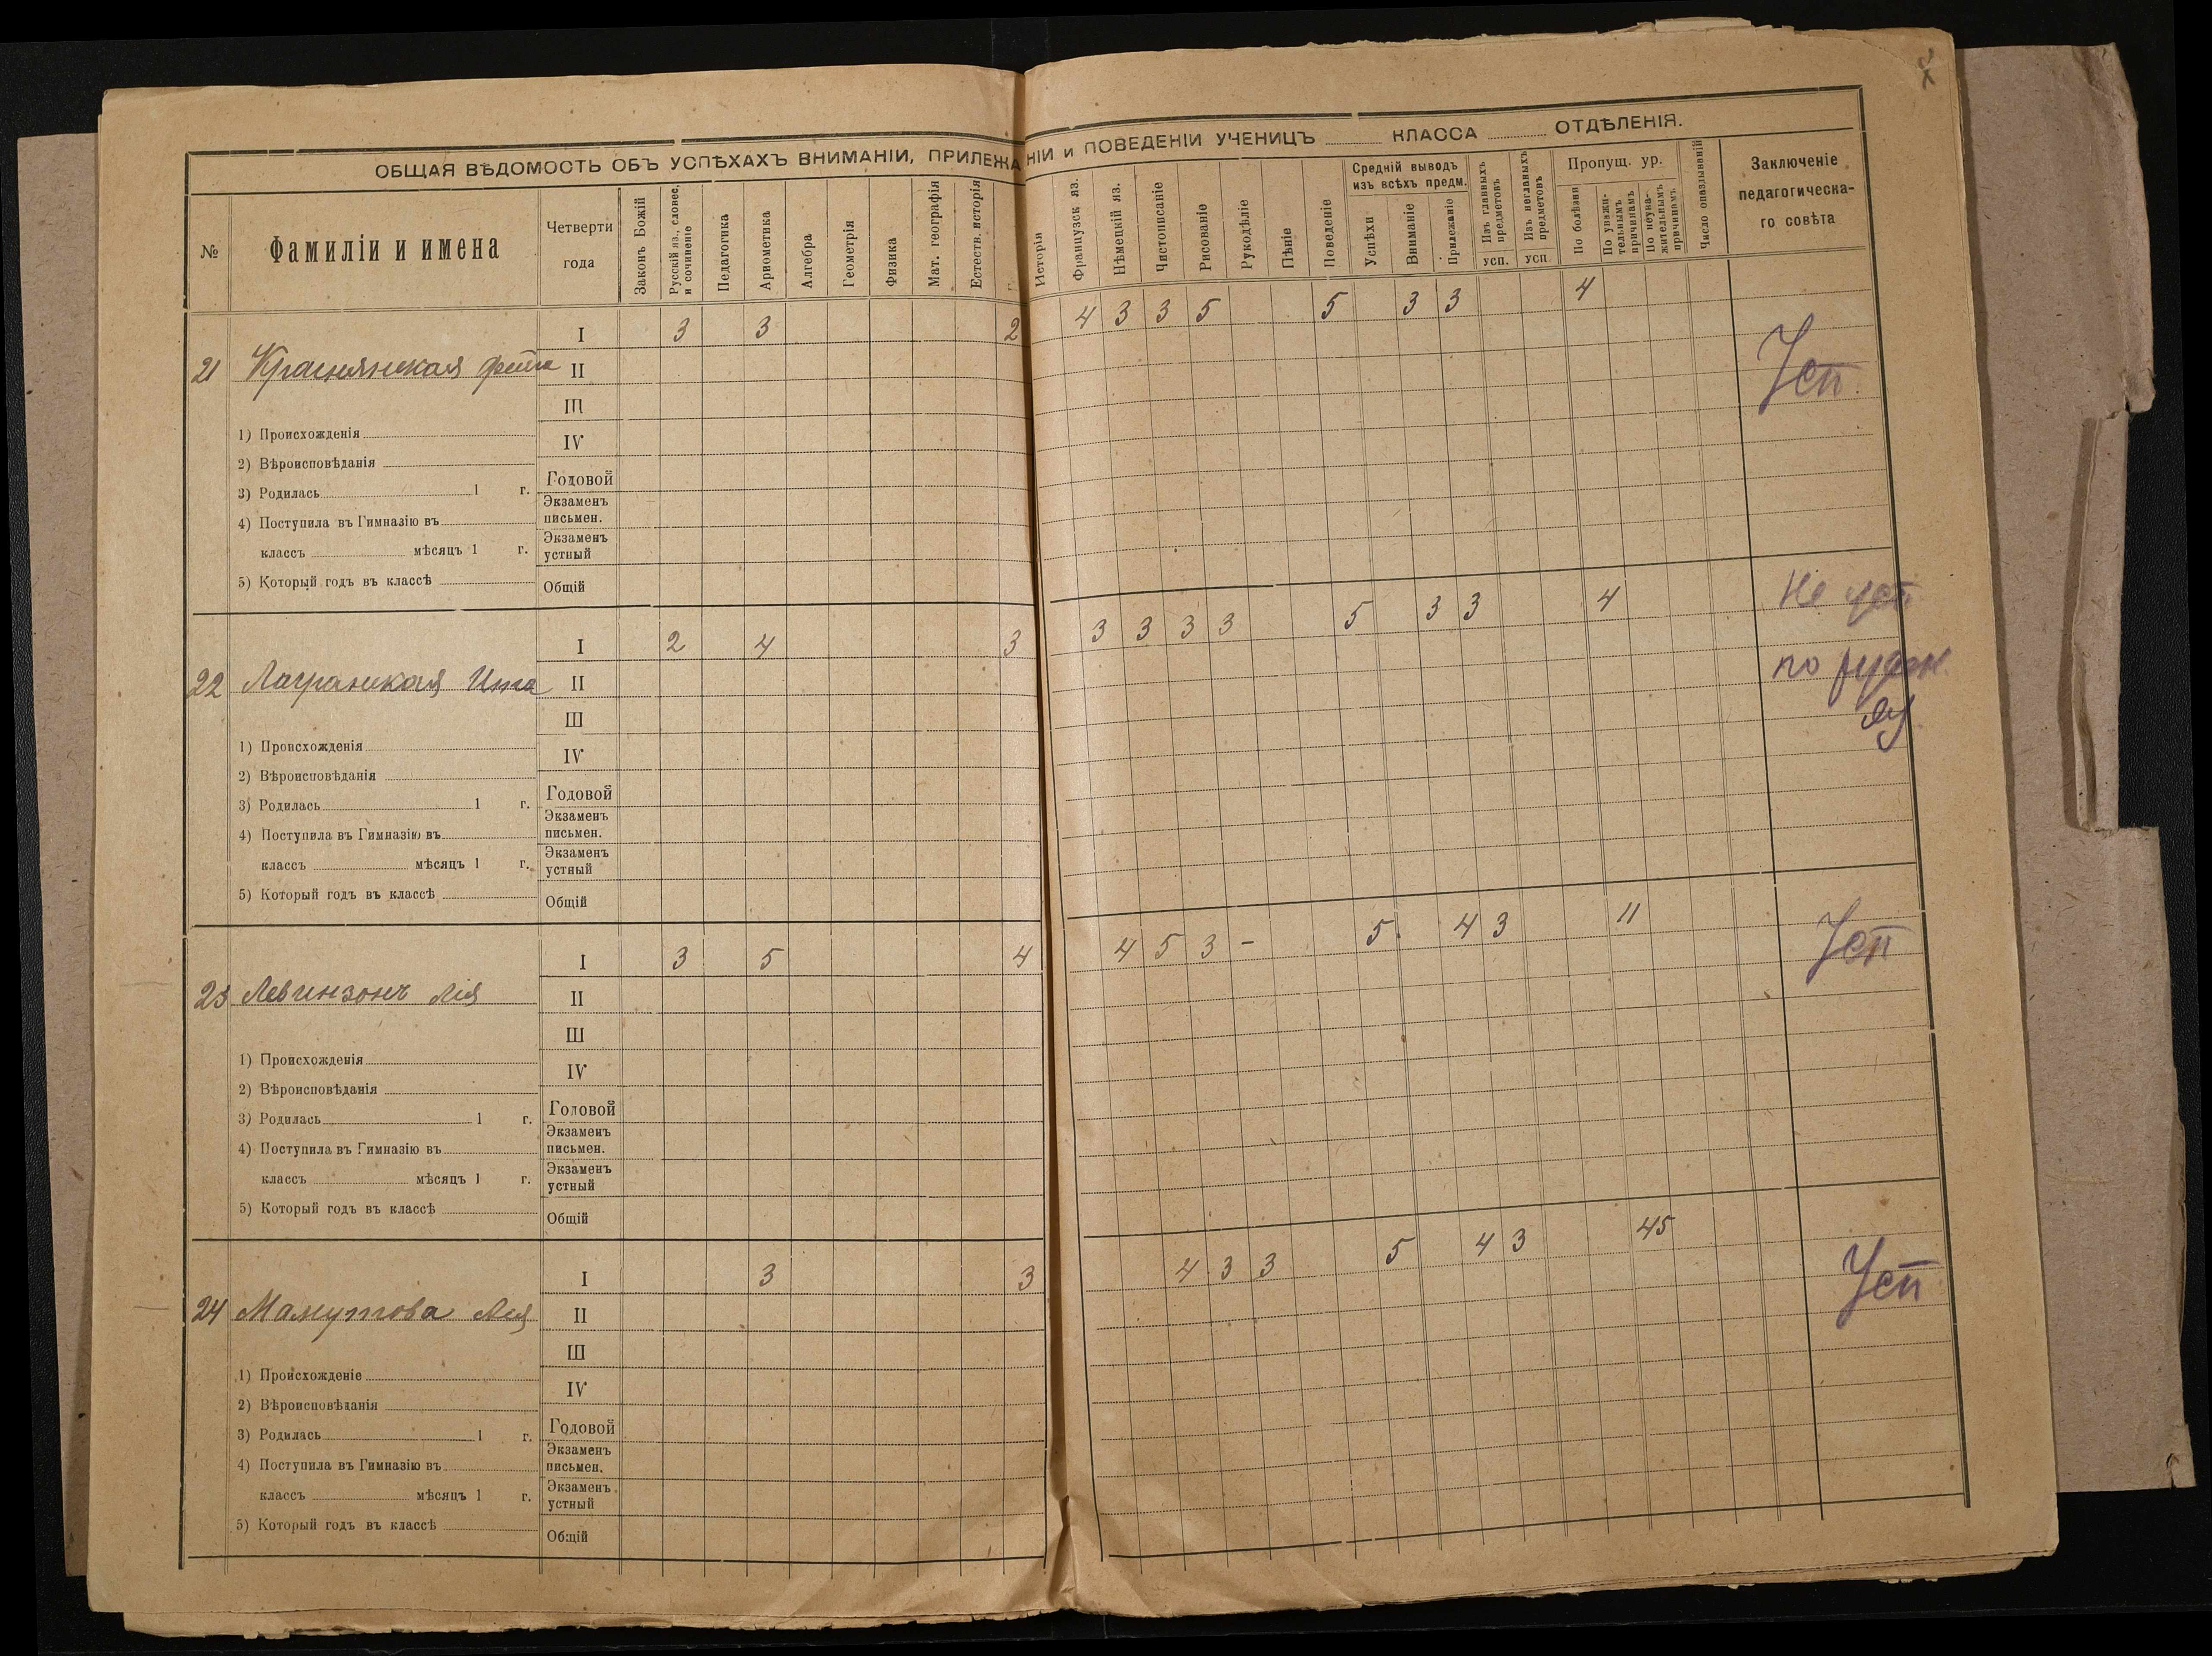 ОБЩАЯ ВѢДОМОСТЬ ОБЪ УСПѢХАХЪ ВНИМАНІИ, ПРИЛЕЖАНІИ и ПОВЕДЕНІИ УЧЕНИЦЪ КЛАССА ОТДѢЛЕНІЯ.
№ Фамиліи и имена Четверти года Законъ Божій Русскій яз., словес. и сочиненіе Педагогика Ариѳметика Алгебра Геометрія Физика Мат. географія Естеств. исторія Исторія Французск яз. Нѣмецкій яз. Чистописаніе Рисованіе Рукодѣліе Пѣніе Поведеніе Средній выводъ изъ всѣхъ предм. Успѣхи Вниманіе Прилежаніе Изъ главныхъ предметовъ усп. Изъ неглавныхъ предметовъ усп Пропущ. ур. По болѣзни По уважительнымъ причинамъ По неуважительнымъ причинамъ Число опаздываній Заключеніе педагогическаго совѣта
I 3 3 2 4 3 3 5 5 3 3 4
21 Краснянская II Усп.
III
1) Происхожденія IV
2) Вѣроисповѣданія
3) Родилась 1 г. Годовой
4) Поступила въ Гимназію въ Экзаменъ письмен.
классъ мѣсяцъ 1 г. Экзаменъ устный
5) Который годъ въ классѣ Общій
I 2 4 3 3 3 3 3 5 3 3 4 Не усп
22 Ита II по русск.
III яз
1) Происхожденія IV
2) Вѣроисповѣданія
3) Родилась 1 г. Годовой
4) Поступила въ Гимназію въ Экзаменъ письмен.
классъ мѣсяцъ 1 г. Экзаменъ устный
5) Который годъ въ классѣ Общій
I 3 5 4 4 5 3 - 5. 4 3 11 Усп
23 Левинзонъ Лія II
III
1) Происхожденія IV
2) Вѣроисповѣданія
3) Родилась 1 г. Годовой
4) Поступила въ Гимназію въ Экзаменъ письмен.
классъ мѣсяцъ 1 г. Экзаменъ устный
5) Который годъ въ классѣ Общій
I 3 3 4 3 3 5 4 3 45
24 Мамутова Лія II Усп
III
1) Происхожденіе IV
2) Вѣроисповѣданія
3) Родилась 1 г. Годовой
4) Поступила въ Гимназію въ Экзаменъ письмен.
классъ мѣсяцъ 1 г. Экзаменъ устный
5) Который годъ въ классѣ Общій